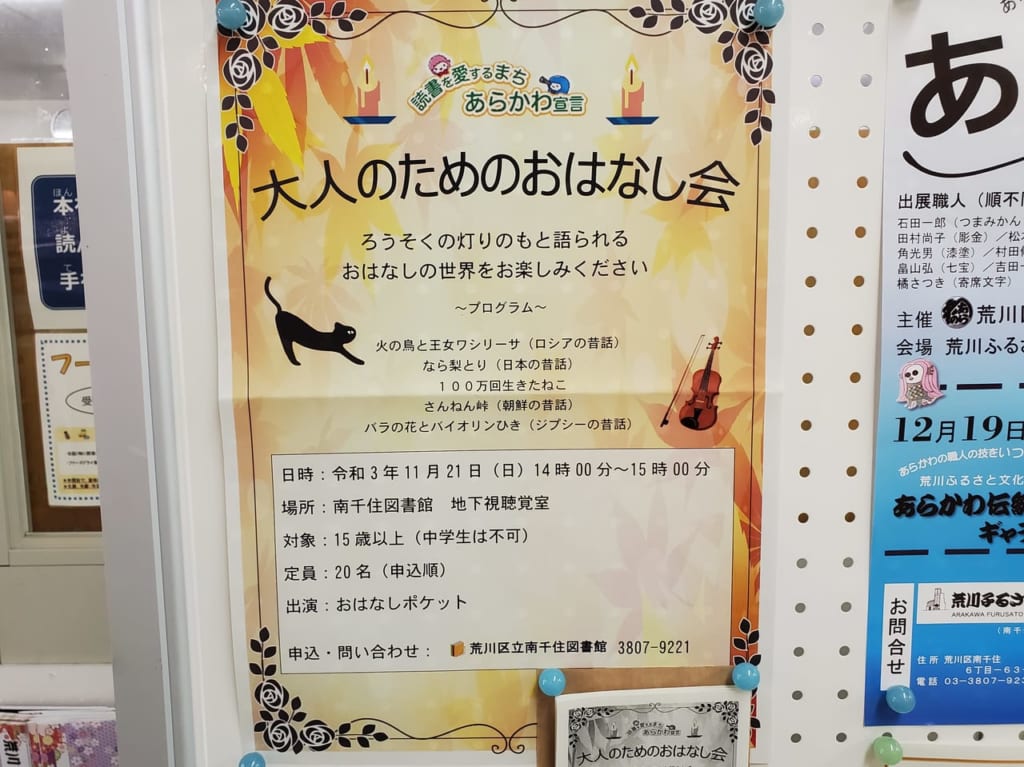 読書を愛するまち
あらかわ宣言
大人のためのおはなし会
ろうそくの灯りのもと語られる
おはなしの世界をお楽しみください
～プログラム～
火の鳥と王女ワシリーサ（ロシアの昔話）
なら梨とり（日本の昔話）
１００万回生きたねこ
さんねん峠（朝鮮の昔話）
バラの花とバイオリンひき（ジプシーの昔話）
日時：令和3年11月21日（日）14時00分～15時00分
場所：南千住図書館　地下視聴覚室
対象：15歳以上（中学生は不可）
定員：20名（申込順）
出演：おはなしポケット
申込・問い合わせ： 荒川区立南千住図書館 3807-9221
大人のためのおはなし会
ほん
本
読
て
手
フー
受
あ
出展職人（順不
石田一郎（つまみかん
田村尚子（彫金）／松
角光男（漆塗）／村田
畠山弘（七宝）／吉田
橘さつき（寄席文字）
主催 荒川
会場 荒川ふる
12月19日
あらかわの職人の技をいつ
荒川ふるさと文化
あらかわ伝
ギャ
お問合せ
荒川ふるさ
ARAKAWA FURUSATO
（南千
住所 荒川区南千住
6丁目−63−
電話 03−3807−923
荒川